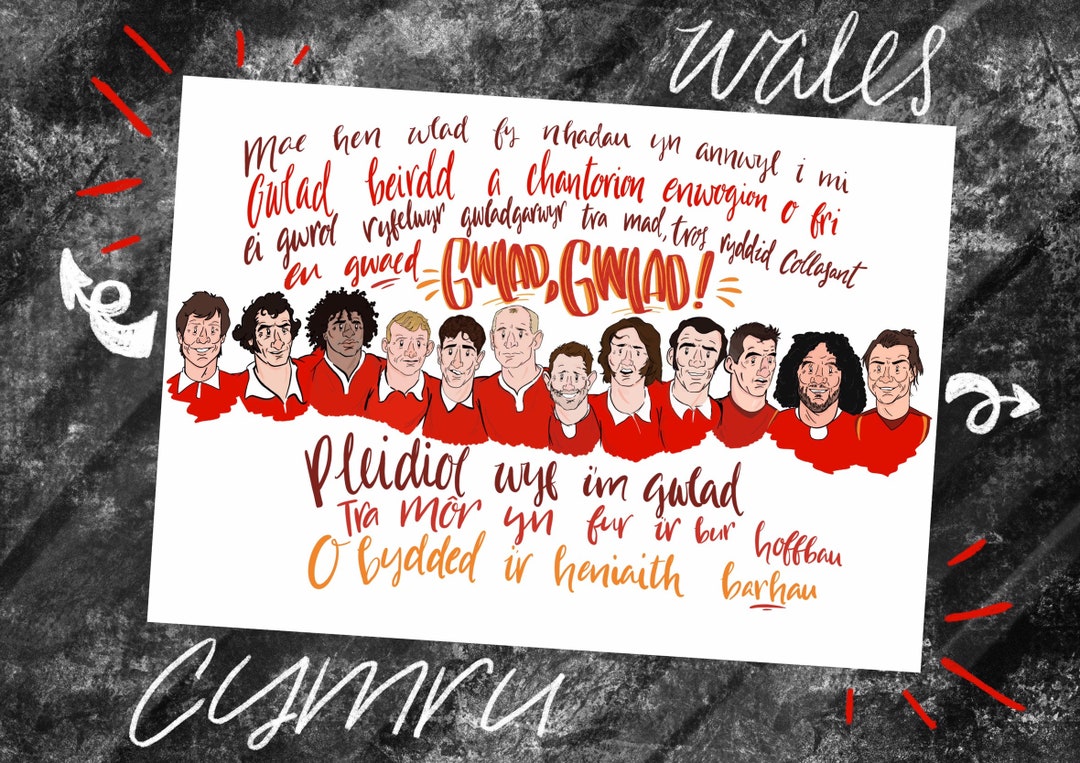 wales
Mae hen wlad fy nhadau yn annwyl i mi
Gwlad beirdd a chantorion enwogion o fri
ei gwrol ryfelwyr gwladgarwyr tra mad, tros ryddid Collasant
eu gwaed GWLAD, GWLAD!
Pleidiol wyf i'm gwlad
Tra môr yn fur i'r bur hoffbau
O bydded i'r heniaith barhau
cymru